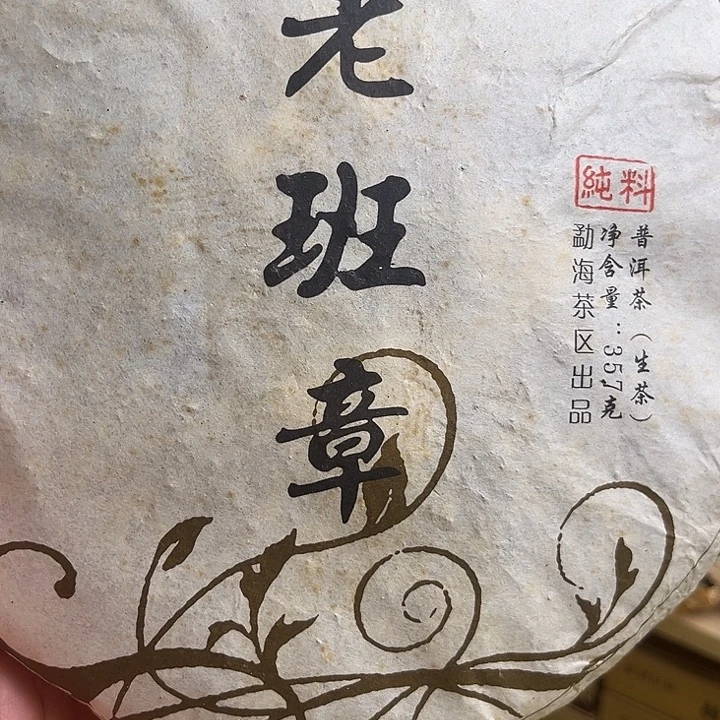 老班章
純料
普洱茶(生茶)
净含量:357克
勐海茶区出品